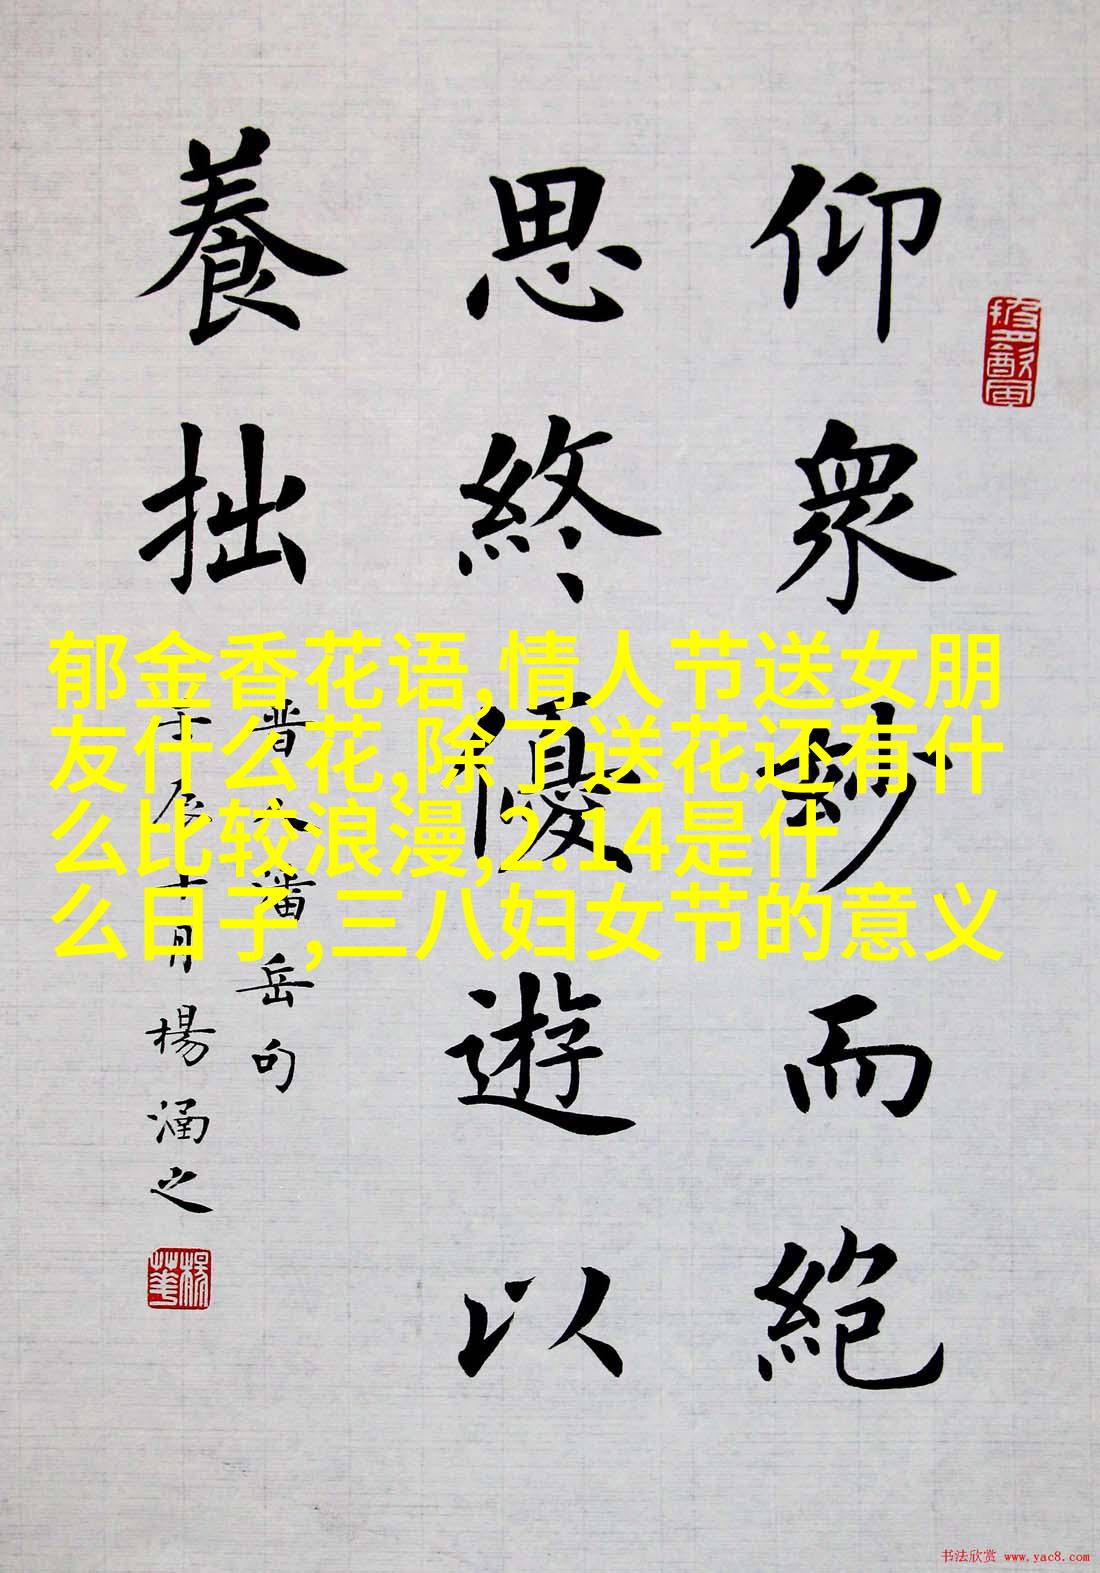 仰眾妙而絕
思終優遊以
養拙
晉人潘岳句
壬辰十月楊涵之
郁金香花语,情人节送女朋
友什么花,除了送花还有什
么比较浪漫,2.14是什
么日子,三八妇女节的意义
书法欣赏 www.yac8.com